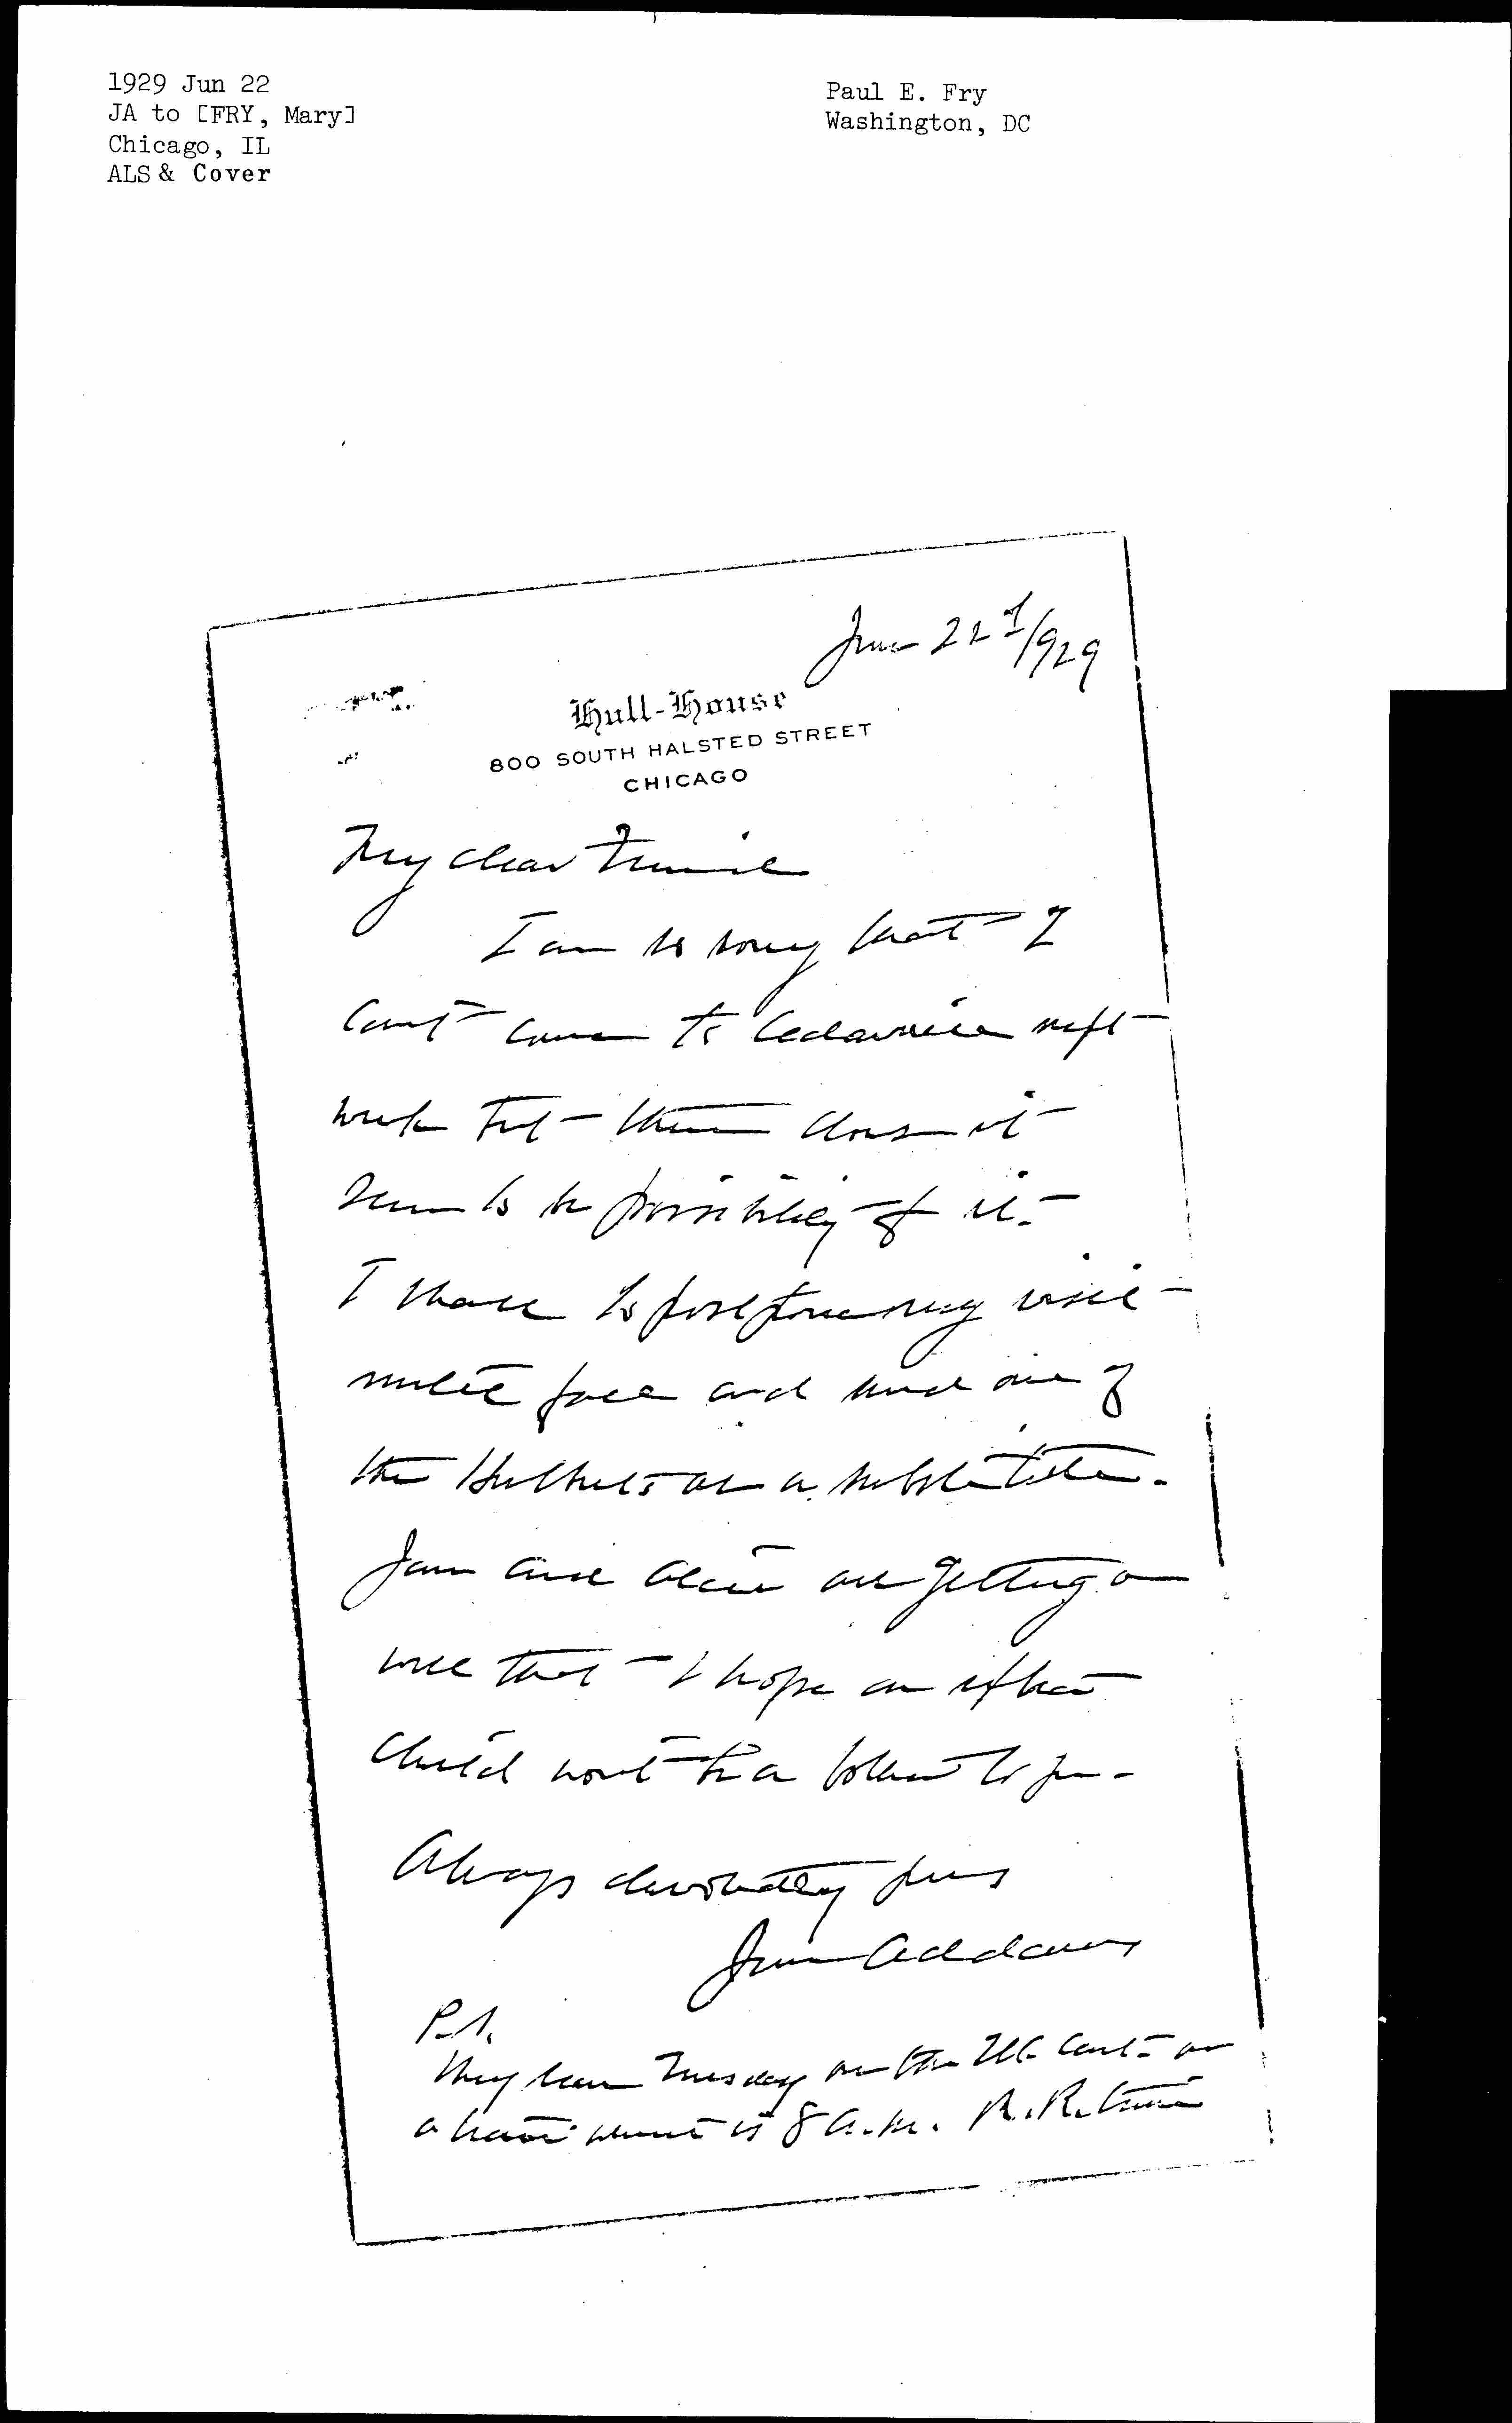 1929 Jun 22
JA to [FRY, Mary]
Chicago, IL
ALS & Cover
Paul E. Fry
Washington, DC
June 22d/1929
Hull-House
800 SOUTH HALSTED STREET
CHICAGO
My dear
I am so sorry that I
can't come to Cedarville next
week but there does not
seem to be possibility of it.
I shall to postpone my visit
until fall and send one of
the Hulberts as a substitute.
Jane and Alice are getting on
well that I hope an other
child won't be a bother to you.
Always devotedly yours
Jane Addams
P.S.
They leave Tuesday on the Ill. Cent. on
a train at 8 a.m. R.R. time